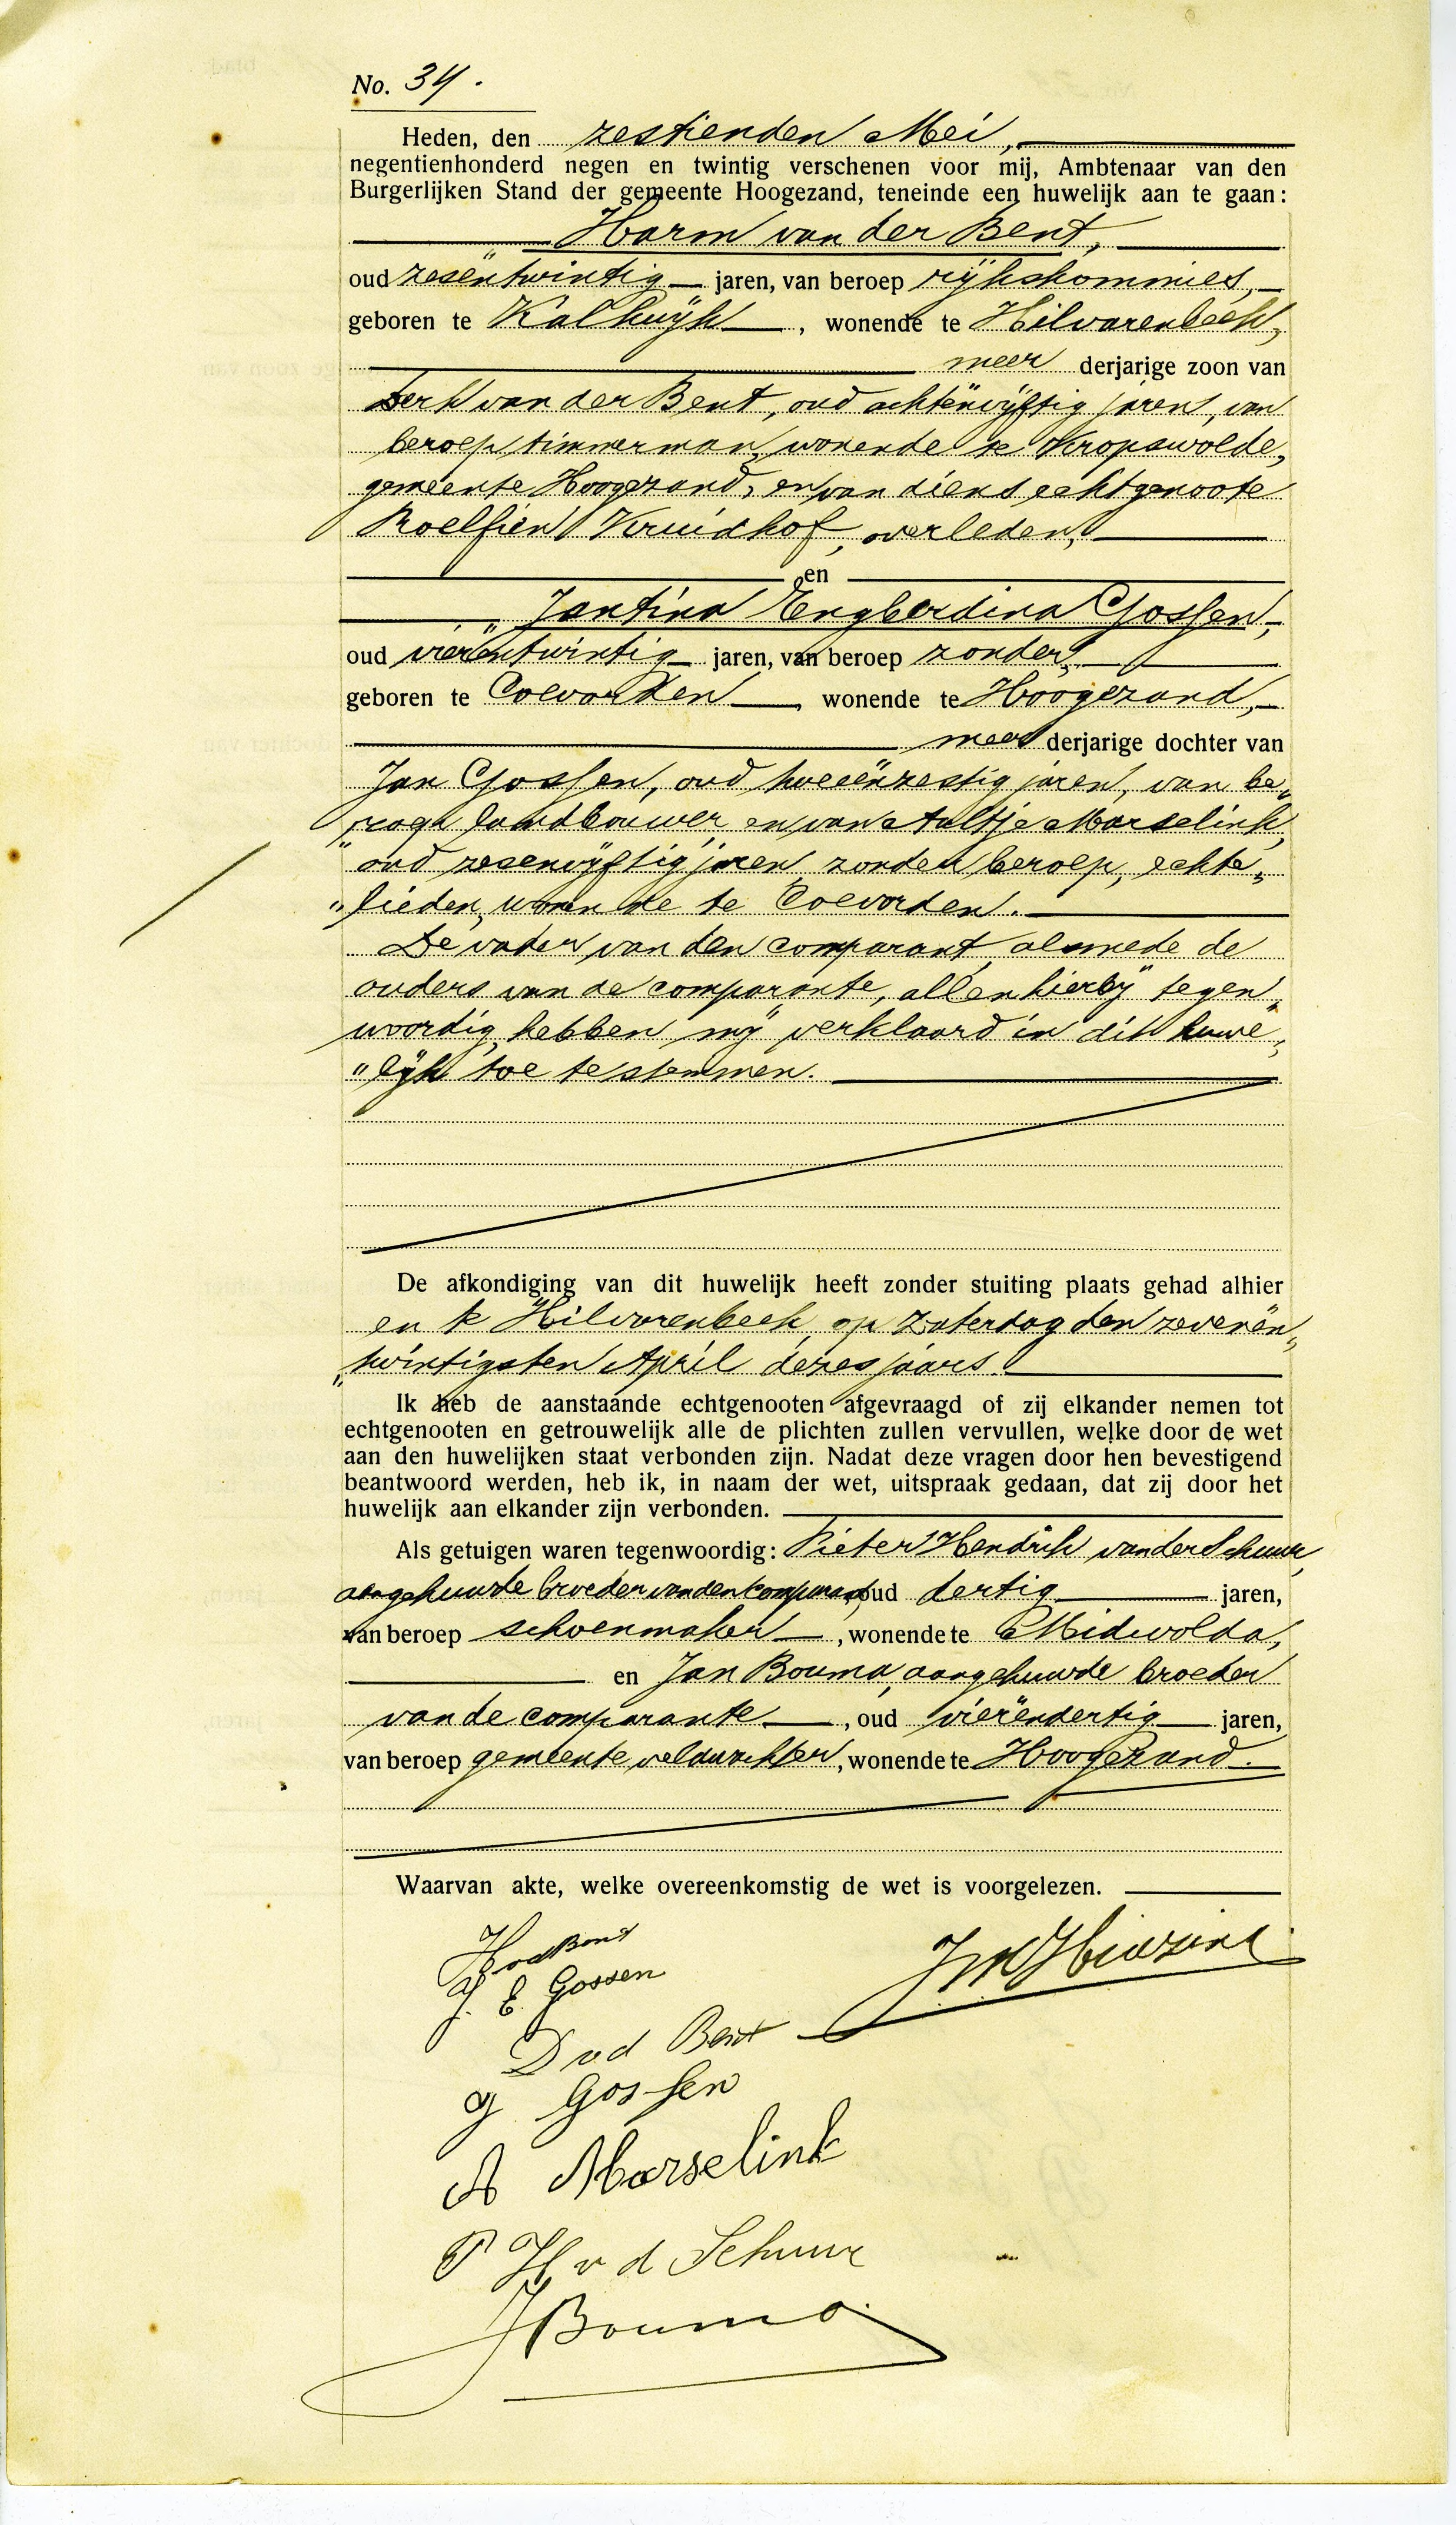 No. 34.
Heden, den zestienden Mei,
negentienhonderd negen en twintig verschenen voor mij, Ambtenaar van den
Burgerlijken Stand der gemeente Hoogezand, teneinde een huwelijk aan te gaan:
Harm van der Bent,
oud zesëntwintig jaren, van beroep rijkskommies,
geboren te Kalkwijk, wonende te Hilvarenbeek,
meer derjarige zoon van
Derk van der Bent, oud achtënvijftig jaren, van
beroep timmerman, wonende te Kropswolde,
gemeente Hoogezand, en van diens echtgenoote
Roelfien Kruidhof, overleden,
en
Jantina Engberdina Gossen,
oud vierëntwintig jaren, van beroep zonder,
geboren te Coevorden, wonende te Hoogezand,
meer derjarige dochter van
Jan Gossen, oud tweeënzestig jaren, van be„
„roep landbouwer, en van Aaltje Marselink,
oud zesenvijftig jaren, zonder beroep, echte„
„lieden, wonende te Coevorden.
De vader van den comparant, alsmede de
ouders van de comparante, allen hierbij tegen„
woordig, hebben mij verklaard in dit huwe„
„lijk toe te stemmen.
De afkondiging van dit huwelijk heeft zonder stuiting plaats gehad alhier
en te Hilvarenbeek, op Zaterdag den zevenën„
„twintigsten April dezes jaars.
Ik heb de aanstaande echtgenooten afgevraagd of zij elkander nemen tot
echtgenooten en getrouwelijk alle de plichten zullen vervullen, welke door de wet
aan den huwelijken staat verbonden zijn. Nadat deze vragen door hen bevestigend
beantwoord werden, heb ik, in naam der wet, uitspraak gedaan, dat zij door het
huwelijk aan elkander zijn verbonden.
Als getuigen waren tegenwoordig: Pieter Hendrik van der Schuur,
aangehuwde broeder van den comparant, oud dertig jaren,
van beroep schoenmaker, wonende te Midwolda,
en Jan Bouma, aangehuwde broeder
van de comparante, oud vierëndertig jaren,
van beroep gemeente veldwachter, wonende te Hoogezand.
Waarvan akte, welke overeenkomstig de wet is voorgelezen.
H vd Bent
J. E. Gossen
D v d Bent
J Gossen
A Marselink
P H v d Schuur
J Bouma